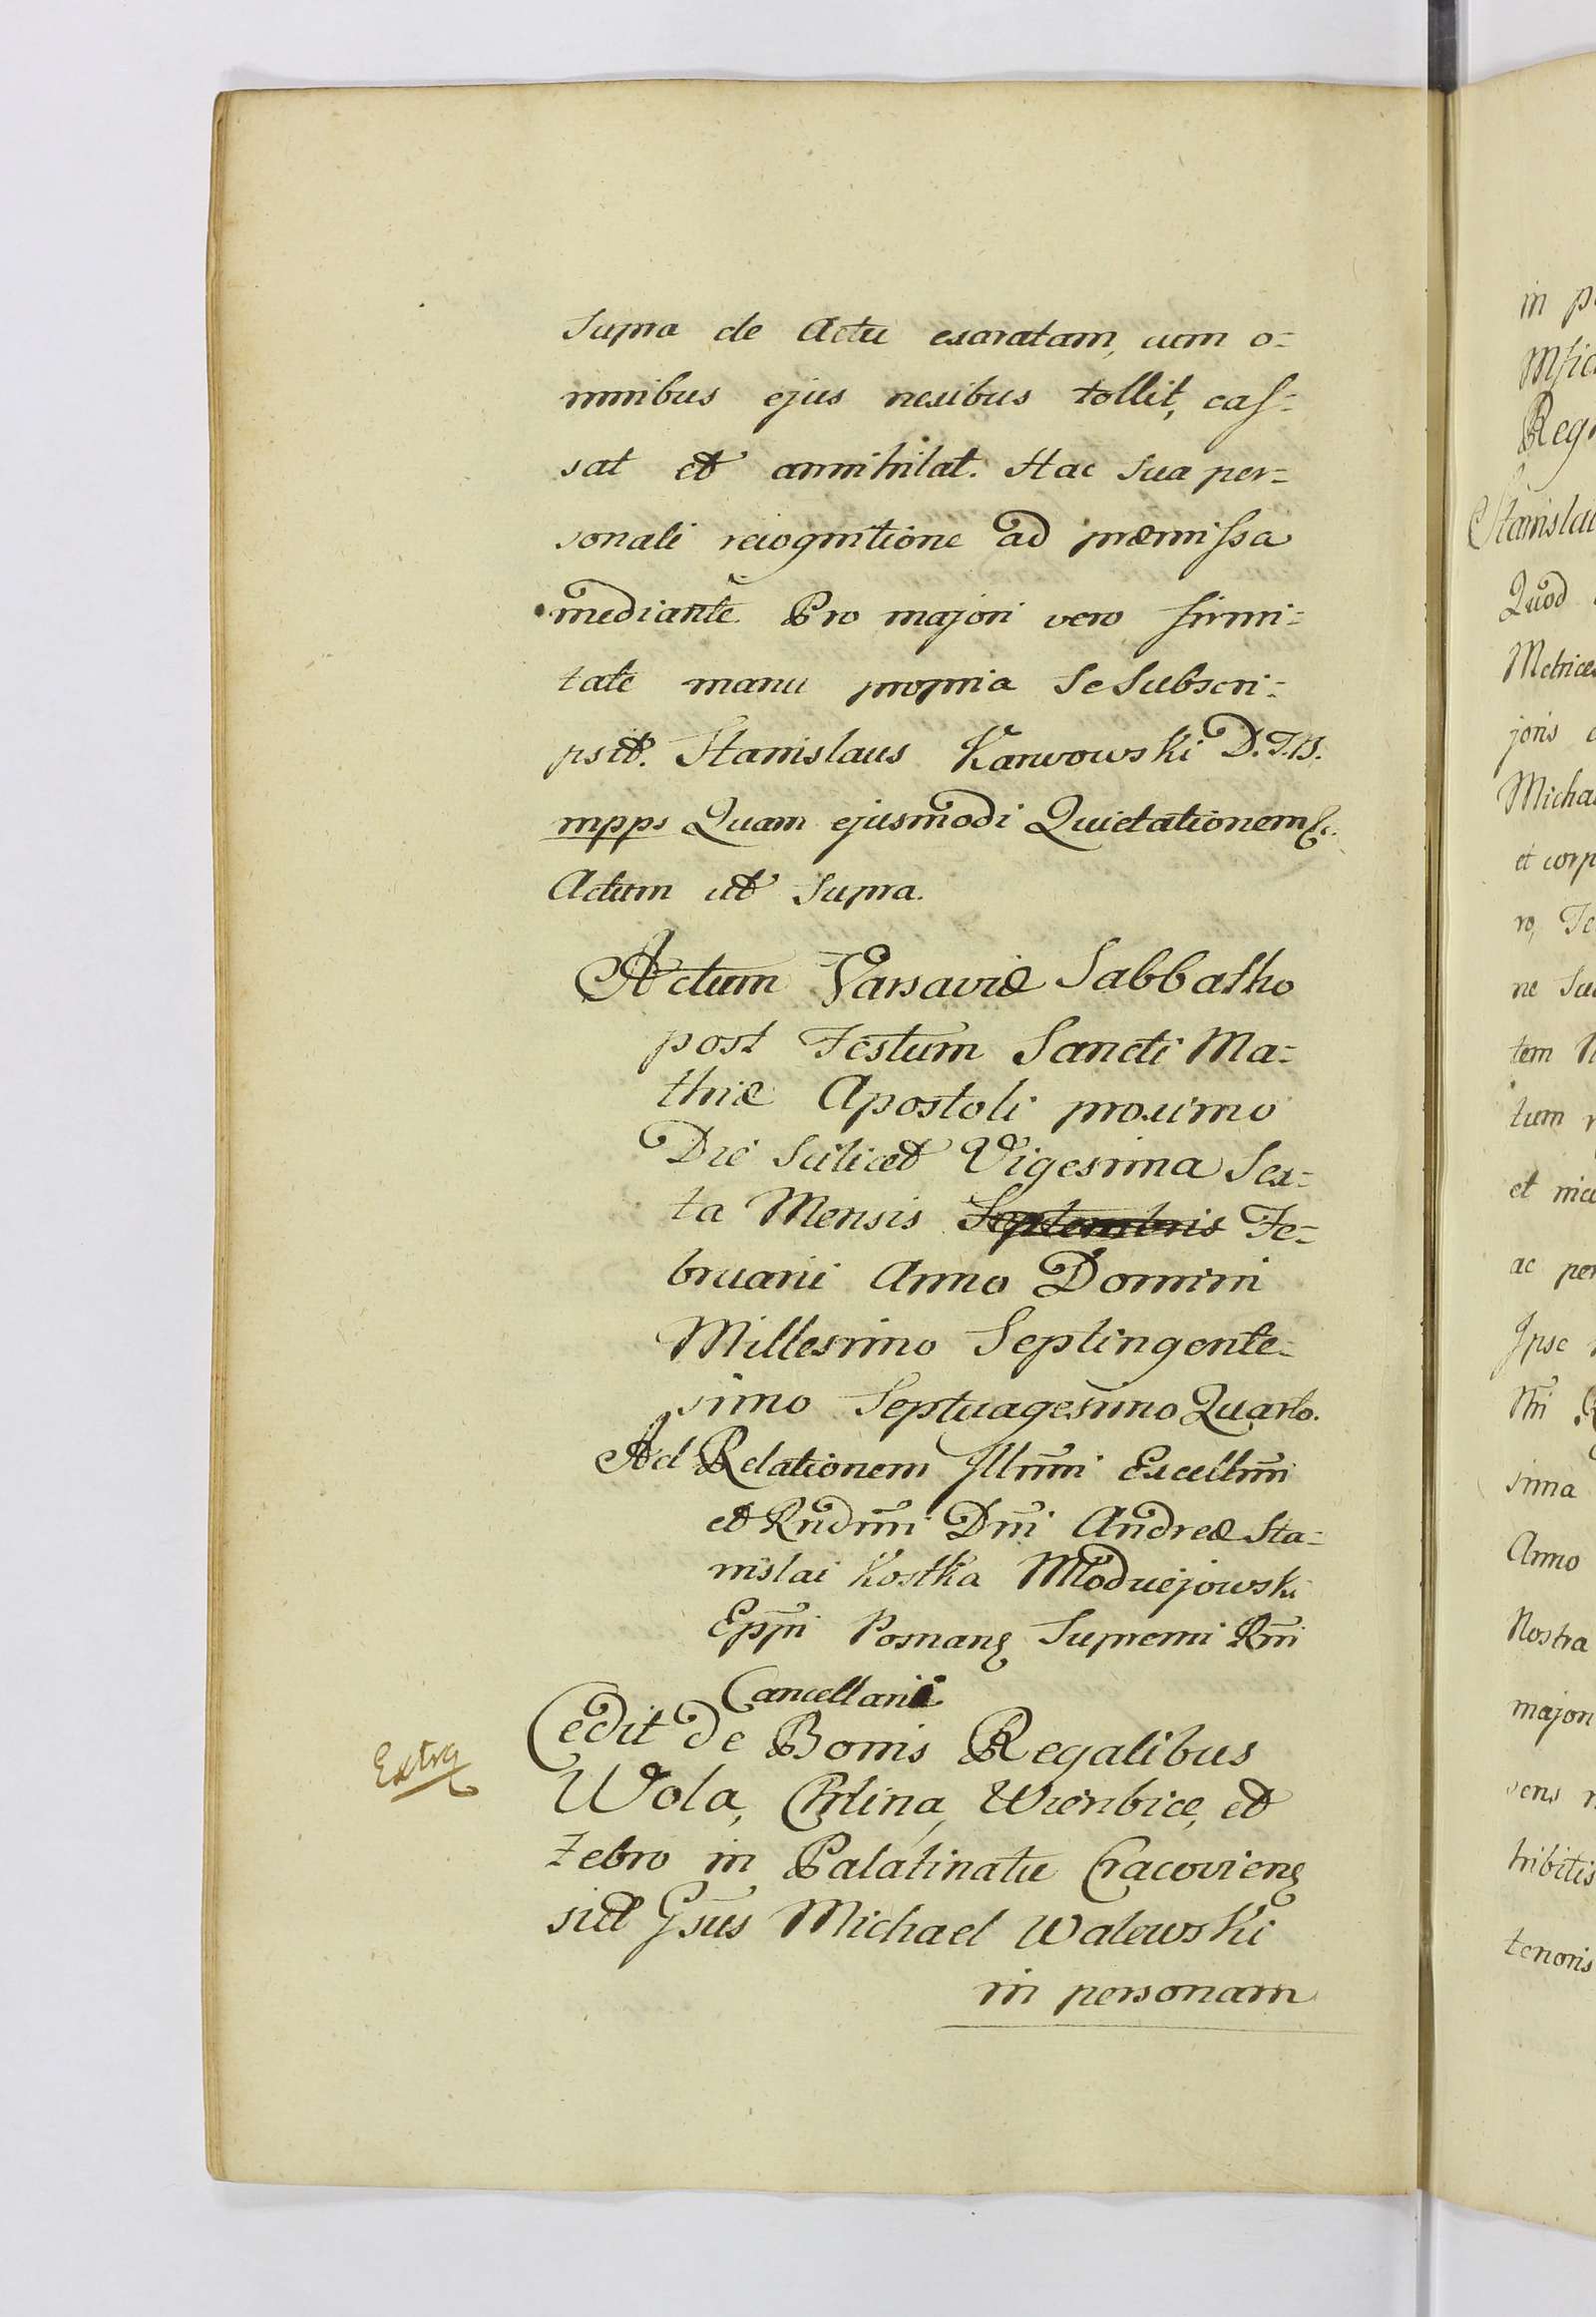 Supra de Actu exaratam, cum o=
mnibus ejus nexibus tollit, cas=
sat et annihilat. Hac sua per=
sonali recognitione ad præmissa
mediante. Pro majori vero firmi=
tate manu propria Se Subscri=
psit. Stanislaus Karwowski D.T.B.
mpps Quam ejusmodi Quietationem &c.
Actum ut Supra.
Actum Varsaviæ Sabbatho
post Festum Sancti Ma=
thiæ Apostoli proximo
Die Scilicet Vigesima Sex=
ta Mensis Septembris Fe=
bruarii Anno Domini
Millesimo Septingente=
simo Septuagesimo Quarto.
Ad Relationem Illmi Excellmi
et Rndmi Dni Andreæ Sta=
nislai Kostka Młodziejowski
Eppi Posnan Supremi Rni
Cancellarii
Extra
Cedit de Bonis Regalibus
Wola, Chlina, Wierzbice, et
Zebro in Palatinatu Cracovien
sit Gsus Michael Walewski
in personam
in p
Regn
Stanislau
Quod
Metrices
joris
Micha
et corp
ro,
ne Su
tem
tum
et
ac per
Ipse
Nri
sima
Anno
Nostra
major
sens
tribitis
tenoris